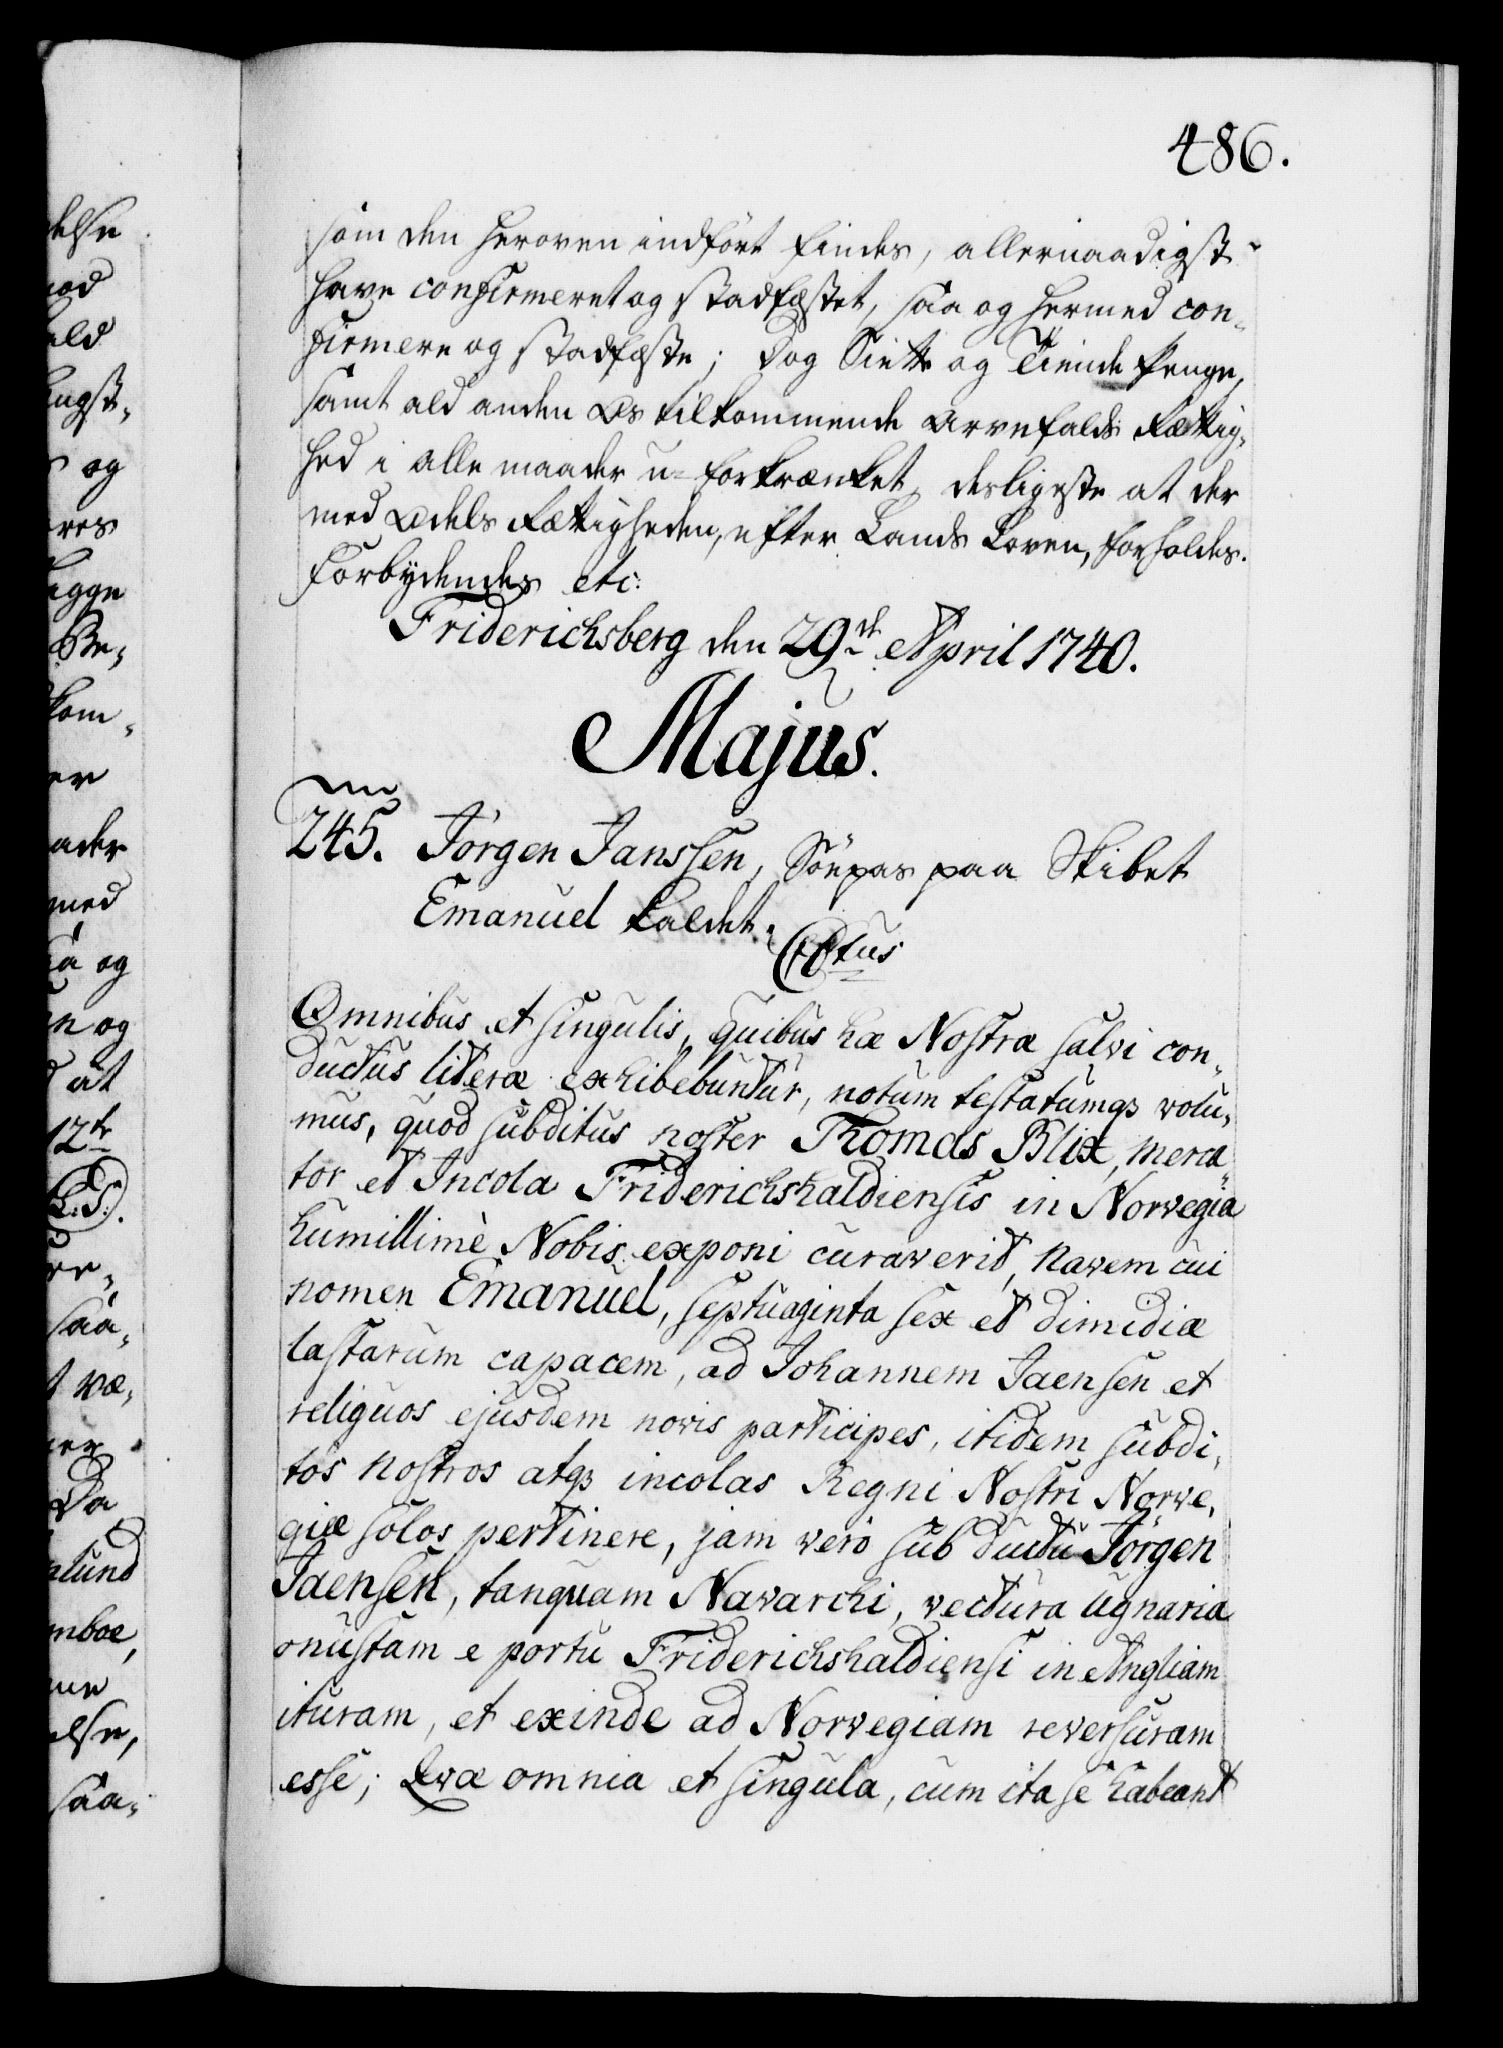 486.
som den heroven indfört findes, allernaadigst
have confirmeret og stadfæstet, saa og hermed con-
firmere og stadfæste; dog Siette og Tiende Penge,
samt ald anden Os tilkommende Arvefalds Rættig-
hed i alle maader u-forkrænket, desligeste at der
med Odels Rættigheden, efter Lands Loven, forholdes.
Forbydendes etc:
Friderichsberg den 29de April 1740.
Majus.
245. Jörgen Janssen, Söepas paa Skibet
Emanuel kaldet.
C6tus
Omnibus et singulis, quibus hæ Nostræ salvi con-
ductus literæ exhibebuntur, notum testatumqz volu-
mus, quod subditus noster Thomas Blix, merca-
tor et Incola Friderichshaldiensis in Norvegia
humillimè Nobis exponi curaverit, navem cui
nomen Emanuel, septuaginta sex et dimidiæ
lastarum capacem, ad Johannem Jaensen et
reliquos ejusdem novis participes, itidem subdi-
tos nostros atqz incolas Regni Nostri Norve-
giæ solos pertinere, jam vero sub ductu Jörgen
Jaensen, tanquam Navarchi, vectura lignaria
onustam e portu Friderichshaldiensi in Angliam
ituram, et exinde ad Norvegiam reversuram
esse; Qvæ omnia et singula, cum ita se habeant
delse
ald
og
eres
egge
Be-
kom-
er
ader
med
og
en og
at
12te
L.S.
saa-
væ-
Da
alund
mboe,
else,
saa-